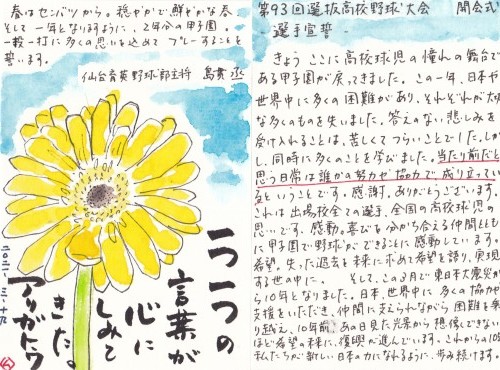 第93回選抜高校野球大会 開会式
-選手宣誓-
きょう ここに高校球児の憧れの舞台で
ある甲子園が戻ってきました。この一年、日本や
世界中に多くの困難があり、それぞれが大切
な多くのものを失いました。答えのない悲しみを
受け入れることは、苦しくてつらいことでした。しか
し、同時に多くのことを学びました。当たり前だと
思う日常は誰かの努力や協力で成り立ってい
るということです。感謝。ありがとうございます。
これは出場校全ての選手、全国の高校球児の思
いです。感動。喜びを分かち合える仲間ととも
に甲子園で野球ができることに感動しています。
希望。失った過去を未来に求めて希望を語り、実現
する世の中に。 そして、この3月で東日本大震災か
ら10年となりました。日本、世界中に多くの協力や
支援をいただき、仲間に支えられながら困難を乗
り越え、10年前、あの日見た光景から想像できない
ほど希望の未来に、復興が進んでいます。これからの10年
私たちが新しい日本の力になれるように、歩み続けます。
春はセンバツから。穏やかで鮮やかな春、
そして一年となりますように、2年分の甲子園。
一投一打に多くの思いを込めてプレーすることを
誓います。
仙台育英野球部主将 島貫 丞
一つ一つの
言葉が
心に
しみて
きた。
アリガトウ
二〇二一、三、十九